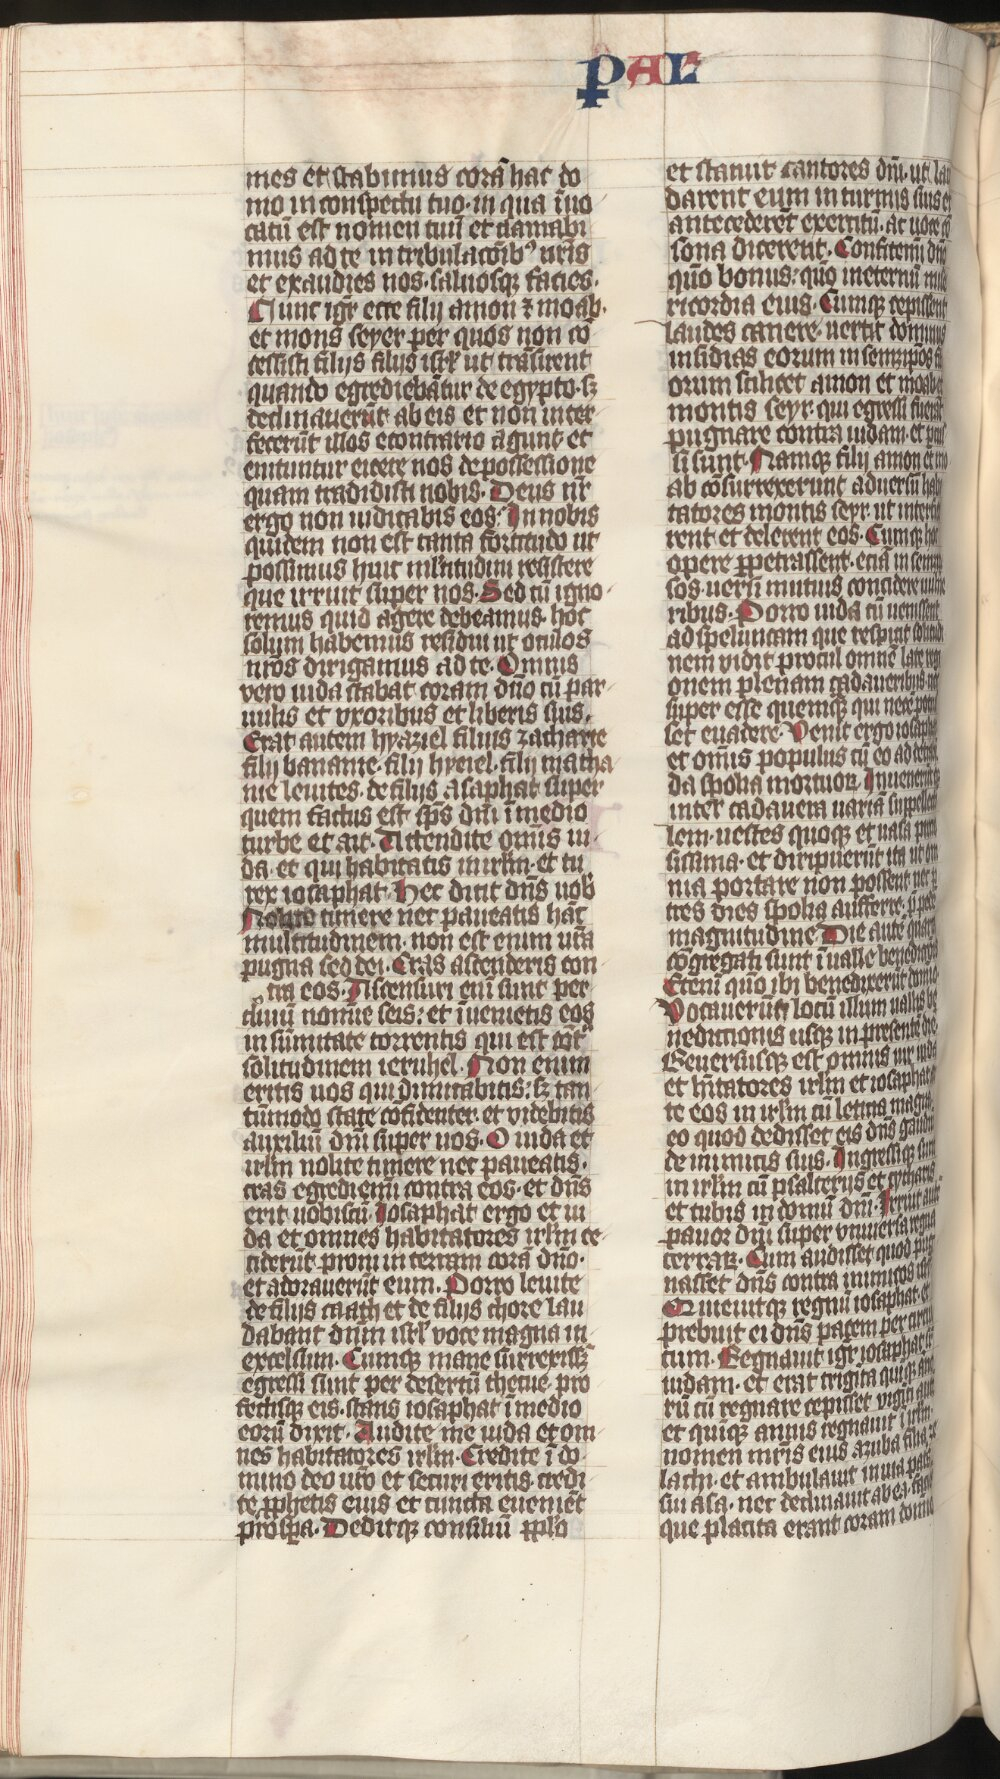 PAL
mes et stabimus corā hac do
mo in conspectu tuo· in qua īuo
catū est nomen tuū et clamabi
mus ad te in tribulacōib⁹ nr̄is
et exaudies nos· saluosqꝫ facies·
Nunc igr̄ ecce filij amon ⁊ moab·
et mons seyer per quos non cō
cessisti filijs filijs isrl̄ ut trāsirent
quando egrediebātur de egypto· sꝫ
declinauerūt ab eis et non inter
fecerūt illos econtrario agunt et
enituntur eicere nos de possessione
quam tradidisti nobis· Deus nr̄
ergo non iudicabis eos· In nobis
quidem non est tanta fortitudo ut
possimus huic ml̄titudini resistere
que irruit super nos· Sed cū igno
remus quid agere debeamus· hoc
solum habemus residui ut oculos
nr̄os dirigamus ad te· Omnis
vero iuda stabat coram dn̄o cū par
uulis et vxoribus et liberis suis·
Erat autem hyaziel filius zacharie
filij bananie· filij hyeiel· filij matha
nie leuites· de filijs asaph at super
quem factus est sp̄s dn̄i ī medio
turbe et ait· Attendite om̄is iu
da· et qui habitatis in irl̄m· et tu
rex iosaphat· Hec dicit dn̄s uob̄
Nolite timere nec paueatis hāc
multitudinem· non est enim ur̄a
pugna sed dei· Cras ascenderis con
tra eos· Ascensuri eni sunt per
cliuū nomīe seis· et īuenietis eos
in sūmitate torrentis qui est cōt̄
solitudinem ieruhel· Non enim
eritis uos qui dimicabitis· sꝫ tan
tūmodo state cōfidenter· et videbitis
auxiliū dn̄i super uos· O iuda et
irl̄m nolite timere nec paueatis·
cras egrediemī contra eos· et dn̄s
erit uobiscū· Iosaphat ergo et iu
da et omnes habitatores irl̄m ce
ciderūt proni in terram corā dn̄o·
et adorauerūt eum· Porro leuite
de filijs caath et de filijs chore lau
dabant dn̄m isrl̄ voce magna in
excelsum· Cumqꝫ mane surrexissꝫ
egressi sunt per desertū thecue· pro
fectisqꝫ eis· stans iosaphat ī medio
eorū dixit· Audite me iuda et om
nes habitatores irl̄m· Credite ī do
mino deo ur̄o et securi eritis· credi
te ꝓphetis eius et cuncta eueniēt
prosp̱a· Deditqꝫ consiliū ꝓpl̄o
et statuit cantores dn̄i· ut lau
darent eum in turmis suis et
antecederēt exercitū· ac uoce cō
sona dicerent· Confitemī dn̄o
quō bonus· quō in eternū mise
ricordia eius· Cumqꝫ cepissent
laudes canere· uertit dominus
insidias eorum in semetip̄os fi
orum scilicet amon et moab et
montis seyr· qui egressi fuerāt
pugnare contra iudam· et ꝑcus
si sunt· Namqꝫ filij amon et mo
ab cōsurrexerunt aduersū habi
tatores montis seyr· ut interfice
rent et delerent eos· Cumqꝫ hoc
opere ꝑpetrassent· eciā in semetip
sos uersi mutuis concidere uulne
ribus· Porro iuda cū uenisset
ad speluncam que respicit solitudi
nem vidit procul omnē late regi
onem plenam cadaueribus· nec
super esse quemqꝫ qui necē potuis
set euadere· Venit ergo iosaphat
et om̄is populus cū eo ad detrahē
da spolia mortuoꝝ· Inueneruntqꝫ
inter cadauera uariā suppellecti
lem· uestes quoqꝫ et uasa preci
sissima· et diripuerūt ita ut om
nia portare non possent· nec ꝑ
tres dies spolia aufferre· ꝓ prede
magnitudine· Die autē quarto
cōgregati sunt ī ualle benedictiōis
Eteni quō ibi benedixerūt domio·
Vocauerūt locū illum uallis be
nedictionis usqꝫ in presentē diē·
Reuersusqꝫ est omnis uir iuda
et hītatores irl̄m et iosaphat an
te eos in irl̄m cū leticia magna·
eo quod dedisset eis dn̄s gaudiū
de inimicis suis· Ingressiqꝫ sunt
in irl̄m cū psalterijs et cytharis
et tubis in domū dn̄i· Irruit autē
pauor dn̄i super vniuersa regna
terraꝝ· Cum audisset quod pug
nasset dn̄s contra inimicos isrl̄
Quieuitqꝫ regnū iosaphat· et
prebuit ei dn̄s pacem per circui
tum· Regnauit igr̄ iosaphat sū
iudam· et erat trigīta quīqꝫ āno
rū cū regnare cepisset viginti autē
et quīqꝫ annis regnauit ī irl̄m·
nomen mr̄is eius azuba filia se
lachi· et ambulauit in uia patris
sui asa· nec declinauit ab ea· faciēs
que placita erant coram domino